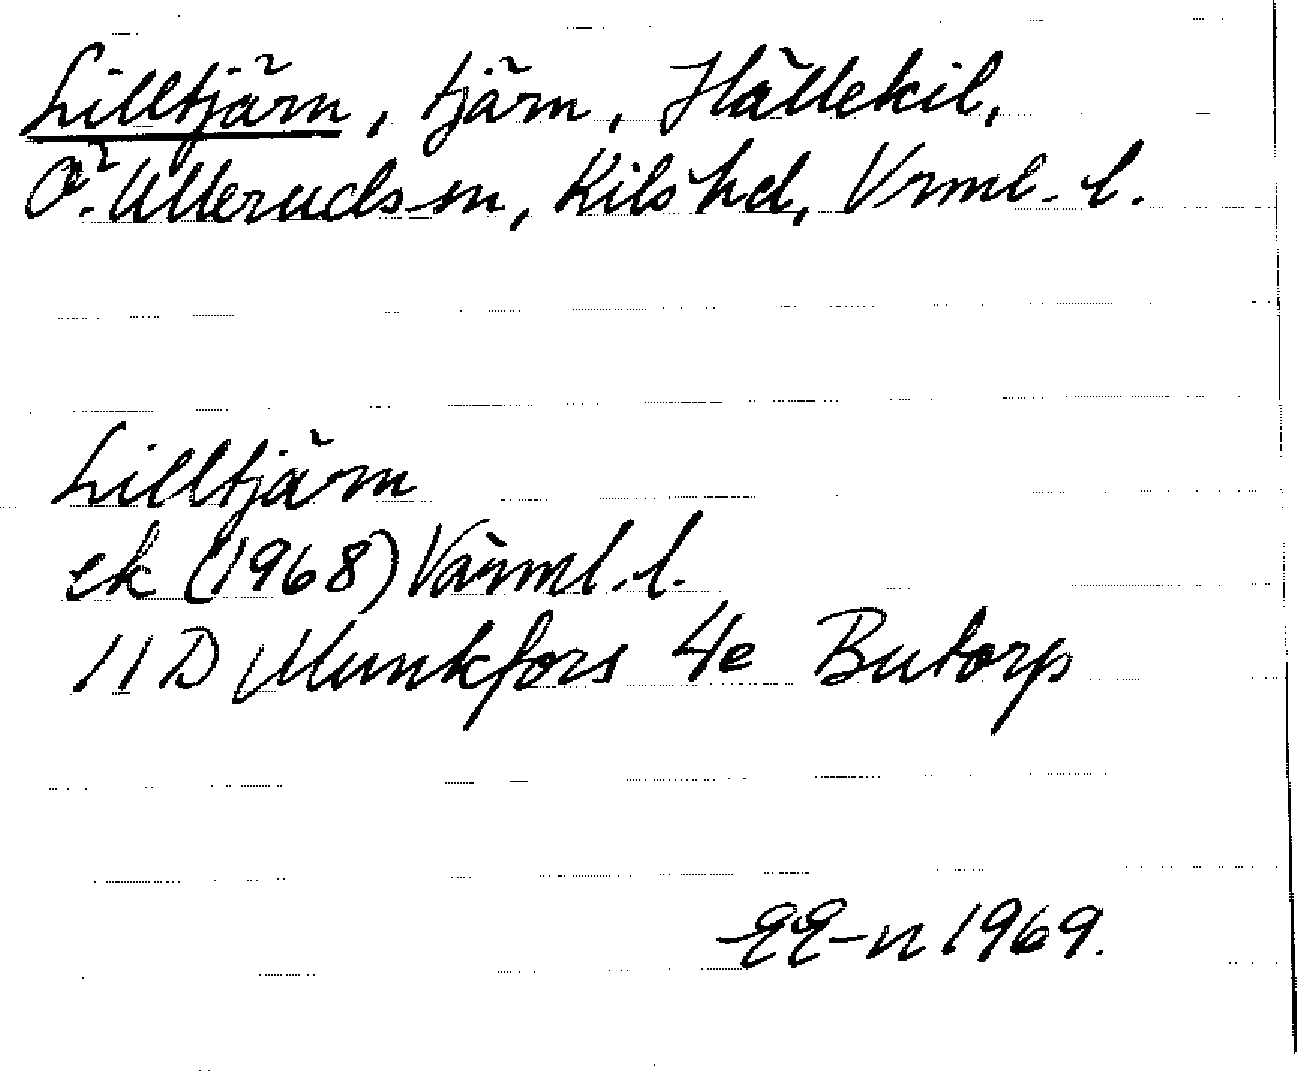 Lilltjärn, tjärn, Hällekil,
Ö. Ulleruds sn, Kils hd, Vrml. l.
Lilltjärn
ek (1968) Värml. l.
11D Munkfors 4e Butorp
EE-n 1969.